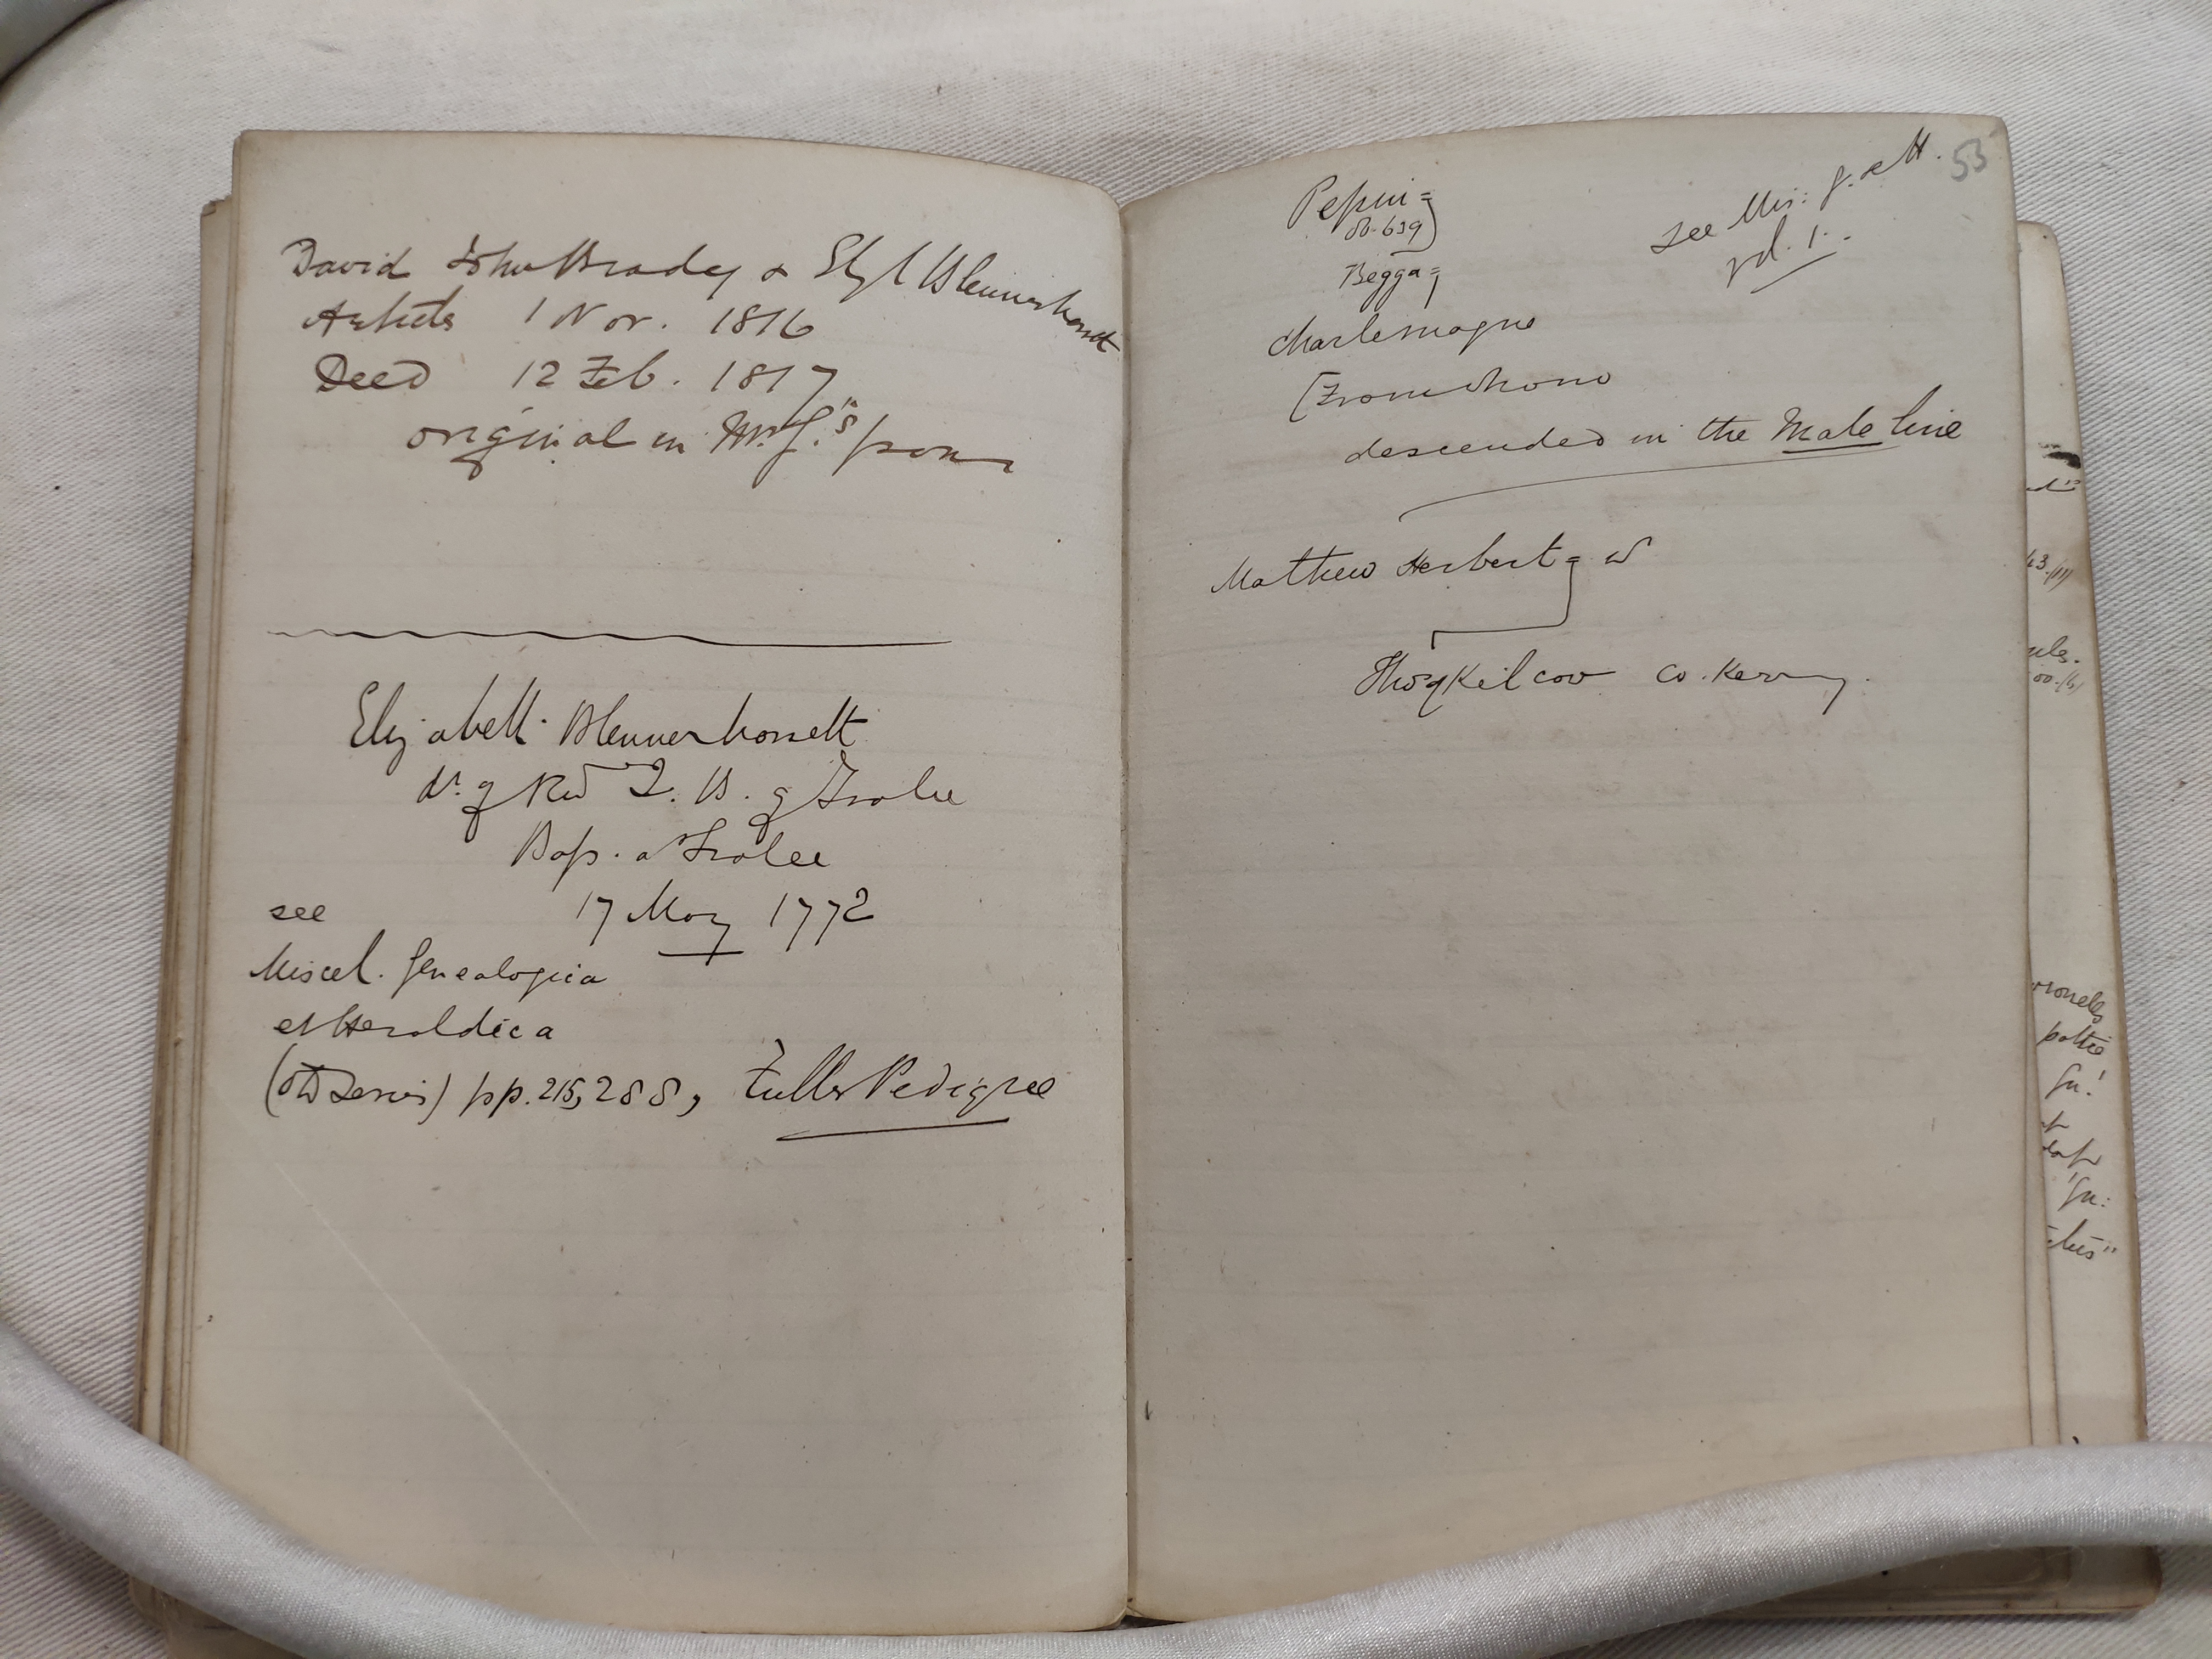 David John Brady & Eliz Blennerhassett
Articles 1 Nov. 1816
Deed 12 Feb. 1817
original in Mr. J.'s posson
Elizabeth Blennerhassett
dr. of Revd J. B. of Tralee
Bap. at Tralee
17 May 1772
see
Miscel. Genealogica
et Heraldica
(Old Series) pp. 215, 288, Fuller Pedigree
53
see Mis: G. et H.
vol. 1.
Pepin =
ob. 639
Begga =
Charlemagne
(From whom
descended in the Male line
Mathew Herbert = w
Thos of Kilcow Co. Kerry.